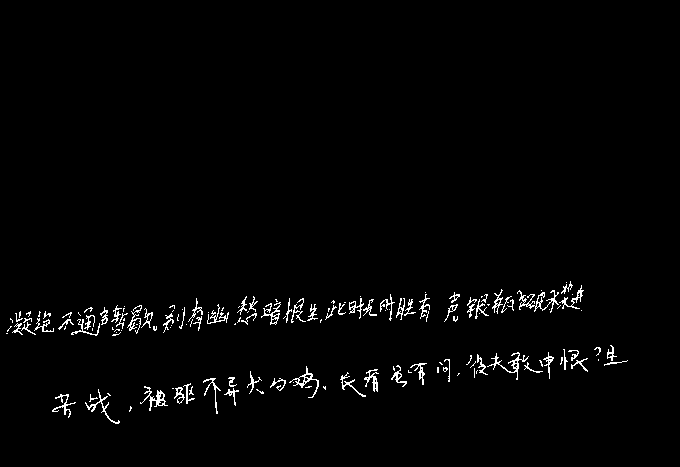 凝绝不通声暂歇。别有幽愁暗恨生,此时无声胜有声。银瓶乍破水浆迸
苦战,被驱不异犬与鸡、长者虽有问,役夫敢申恨?且